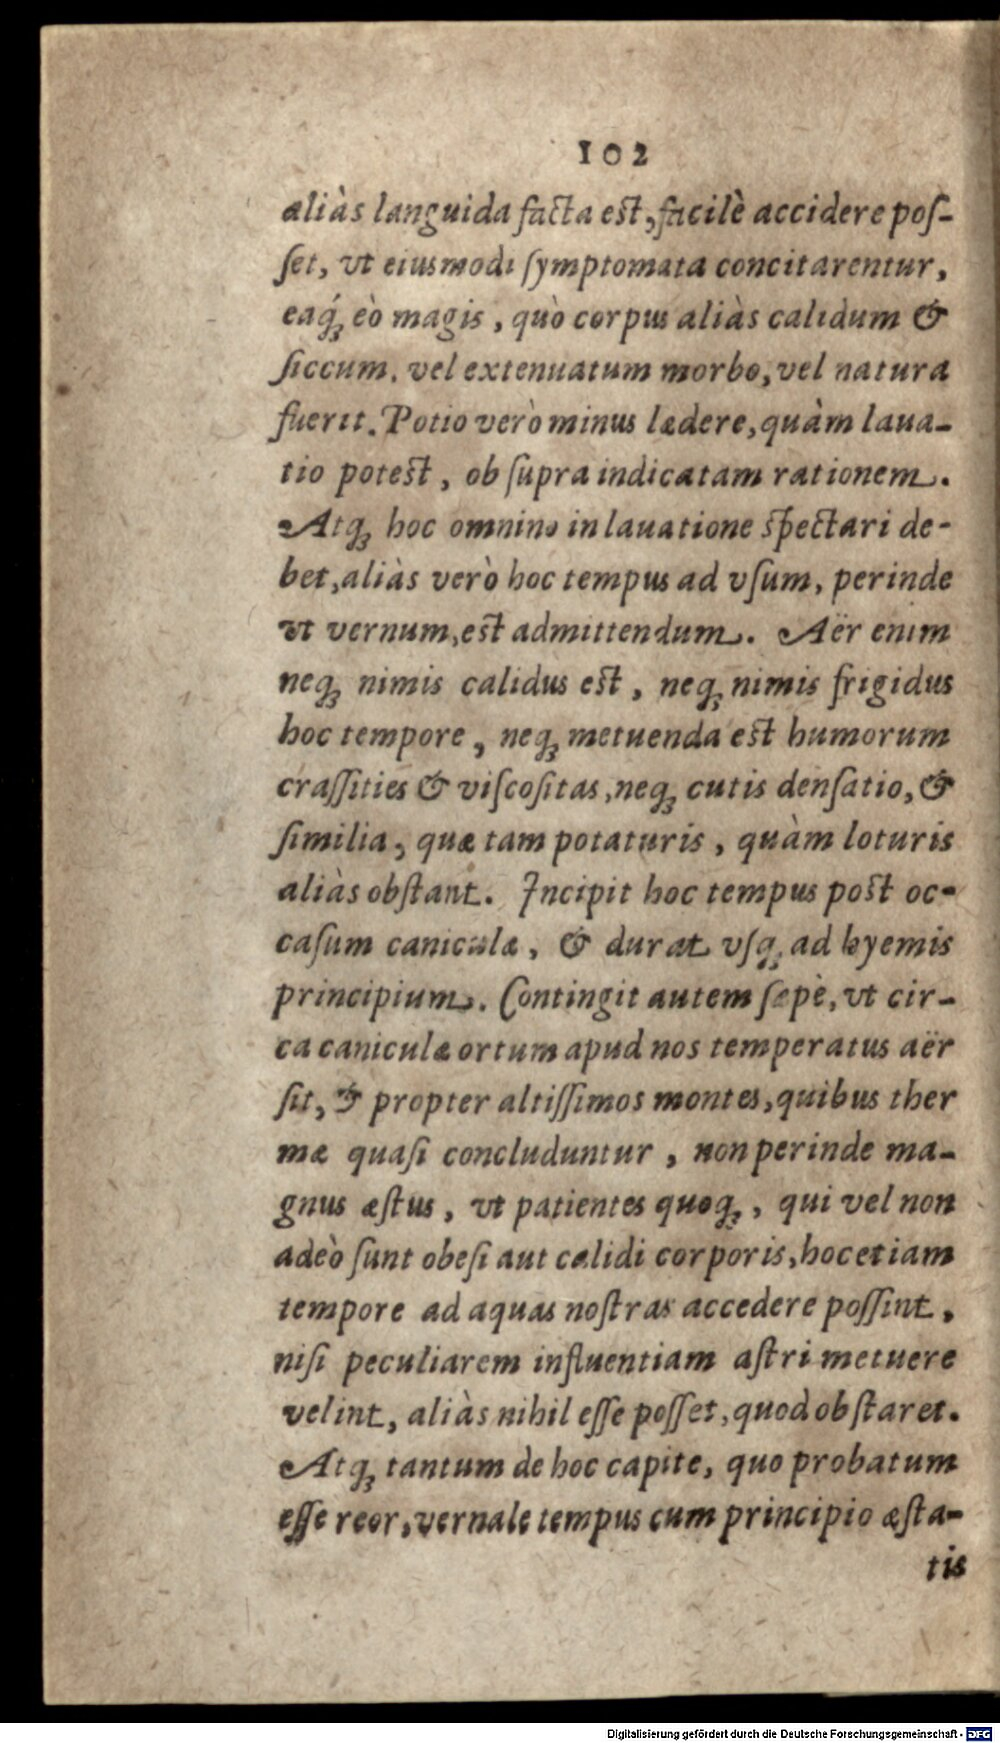 102
aliàs languida facta est, facilè accidere poſ-
ſet, vt eiusmodi ſymptomata concitarentur,
eaq́ꝫ eò magis, quò corpus aliàs calidum &
ſiccum, vel extenuatum morbo, vel natura
fuerit. Potio verò minus lædere, quàm laua-
tio potest, ob ſupra indicatam rationem.
Atqꝫ hoc omnino in lauatione ſpectari de-
bet, aliàs verò hoc tempus ad vſum, perinde
vt vernum, est admittendum. Aër enim
neqꝫ nimis calidus est, neqꝫ nimis frigidus
hoc tempore, neqꝫ metuenda est humorum
craſſities & viſcoſitas, neqꝫ cutis denſatio, &
ſimilia, quæ tam potaturis, quàm loturis
aliàs obſtant. Incipit hoc tempus post oc-
caſum caniculæ, & durat vſqꝫ ad hyemis
principium. Contingit autem ſæpè, vt cir-
ca caniculæ ortum apud nos temperatus aër
ſit, & propter altiſſimos montes, quibus ther
mæ quaſi concluduntur, non perinde ma-
gnus æſtus, vt patientes quoqꝫ, qui vel non
adeò ſunt obeſi aut calidi corporis, hoc etiam
tempore ad aquas noſtras accedere poſſint,
niſi peculiarem influentiam aſtri metuere
velint, aliàs nihil eſſe poſſet, quod obſtaret.
Atqꝫ tantum de hoc capite, quo probatum
eſſe reor, vernale tempus cum principio æſta-
tis
Digitalisierung gefördert durch die Deutsche Forschungsgemeinschaft - DFG